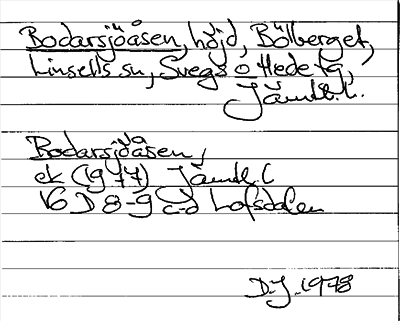 Bodarsjöåsen, höjd, Bölberget,
Linsells sn, Svegs o Hede tg,
Jämtl. l.
Bodarsjöåsen,
ek (1977) Jämtl. l
16 D 8-9 c-d Lofsdalen
D.J. 1978